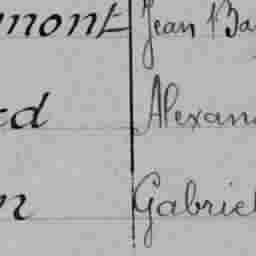 mont Jean Ba
rd Alexan
n Gabriel